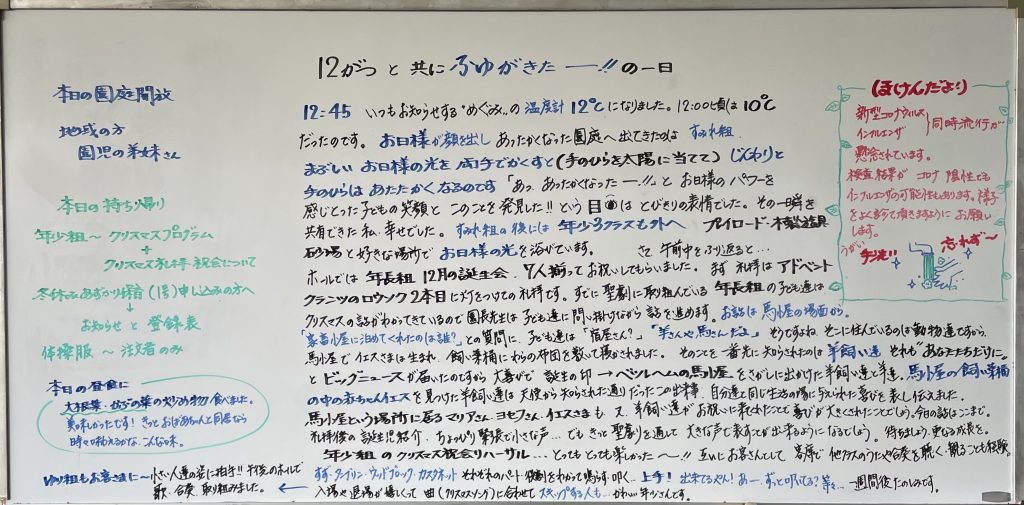 12がつ と 共に ふゆがきたー!! の一日
本日の園庭開放
地域の方
園児の弟妹さん
本日の持ち帰り
年少組〜 クリスマスプログラム
+
クリスマス礼拝・祝会について
冬休みあずかり保育(1号)申し込みの方へ
↓
お知らせ と 登録表
体操服 〜 注文者のみ
本日の昼食に
大根葉・かぶの葉の炒め物 食べました。
美味しかったです! きっとおばあちゃんと同居なら
時々味わえるかな、こんな味。
12:45 いつもお知らせする"めぐみ"の 温度計 12℃ になりました。12:00頃は 10℃
だったのです。お日様が顔を出し あったかくなった園庭へ出てきたのは すみれ組
まぶしい お日様の光を両手でかくすと(手のひらを太陽に当てて) じんわりと
手のひらは あたたかくなるのです「あっ あったかくなったー!!」と お日様の パワーを
感じとった子どもの笑顔と このことを発見した!! という目は とびきりの表情でした。その一瞬を
共有できた私、幸せでした。 すみれ組の後には 年少3クラスも外へ プレイロード・木製遊具
砂場と好きな場所で お日様の光を浴びています。 さて 午前中をふり返ると…
ホールでは 年長組 12月の誕生会、7人揃ってお祝いしてもらいました。まず 礼拝は アドベント
クランツのロウソク 2本目に灯をつけての礼拝です。すでに 聖劇に取り組んでいる 年長組の子ども達は
クリスマスの話がわかってきているので 園長先生は 子ども達に問い掛けながら 話を進めます。お話は 馬小屋の場面から。
「家畜小屋に泊めてくれたのは誰?」との質問に、子ども達は「宿屋さん」、「羊さんや馬さんだよ」そうですよね、そこに住んでいるのは動物達ですから。
馬小屋で イエスさまは生まれ 飼い葉桶にわらの布団を敷いて寝かされました。そのことを 一番先に知らされたのは 羊飼い達 それも"あなたたちだけに"
と ビッグニュースが届いたのですから 大喜びで 誕生の印→ベツレヘムの馬小屋をさがしに出かけた羊飼い達と羊達。馬小屋の飼い葉桶
の中の赤ちゃんイエスを見つけた羊飼い達は 天使から知らされた通りだったこの出来事、自分達と同じ生活の場に与えられた喜びを表し伝えました。
馬小屋という場所に居る マリアさん・ヨセフさん・イエスさまも 又、羊飼い達がお祝いに来てくれたことで 喜びが大きくされたことでしょう。今日の話はここまで。
礼拝後の 誕生児紹介、ちょっぴり緊張で小さな声… でも きっと 聖劇を通して 大きな声で表すことが出来るようになるでしょう。待ちましょう更なる成長を。
年少組の クリスマス祝会リハーサル… とっても とっても 楽しかった〜!! 互いにお客さんとして 客席で 他クラスのうたや合奏を聴く・観ることも経験。
ゆり組もお客さまに〜小さい人達の姿に拍手!! 午後のホールで
歌・合奏、取り組みました。
すず・タンブリン・ウッドブロック・カスタネット それぞれのパート・役割をわかって鳴らす・叩く… 上手! 出来てるやん! あー、ずっと叩いてる? 等々… 一週間後たのしみです。
← 入場や退場が嬉しくって 曲(クリスマスソング)に合わせて スキップする人も… かわいい年少さんです。
(ほけんだより)
新型コロナウィルス
インフルエンザ
}同時流行が
懸念されています。
検査結果が コロナ 陰性でも
インフルエンザの可能性もあります。様子
をよくみて頂きますように お願い
します。
うがい
手洗い 忘れず〜